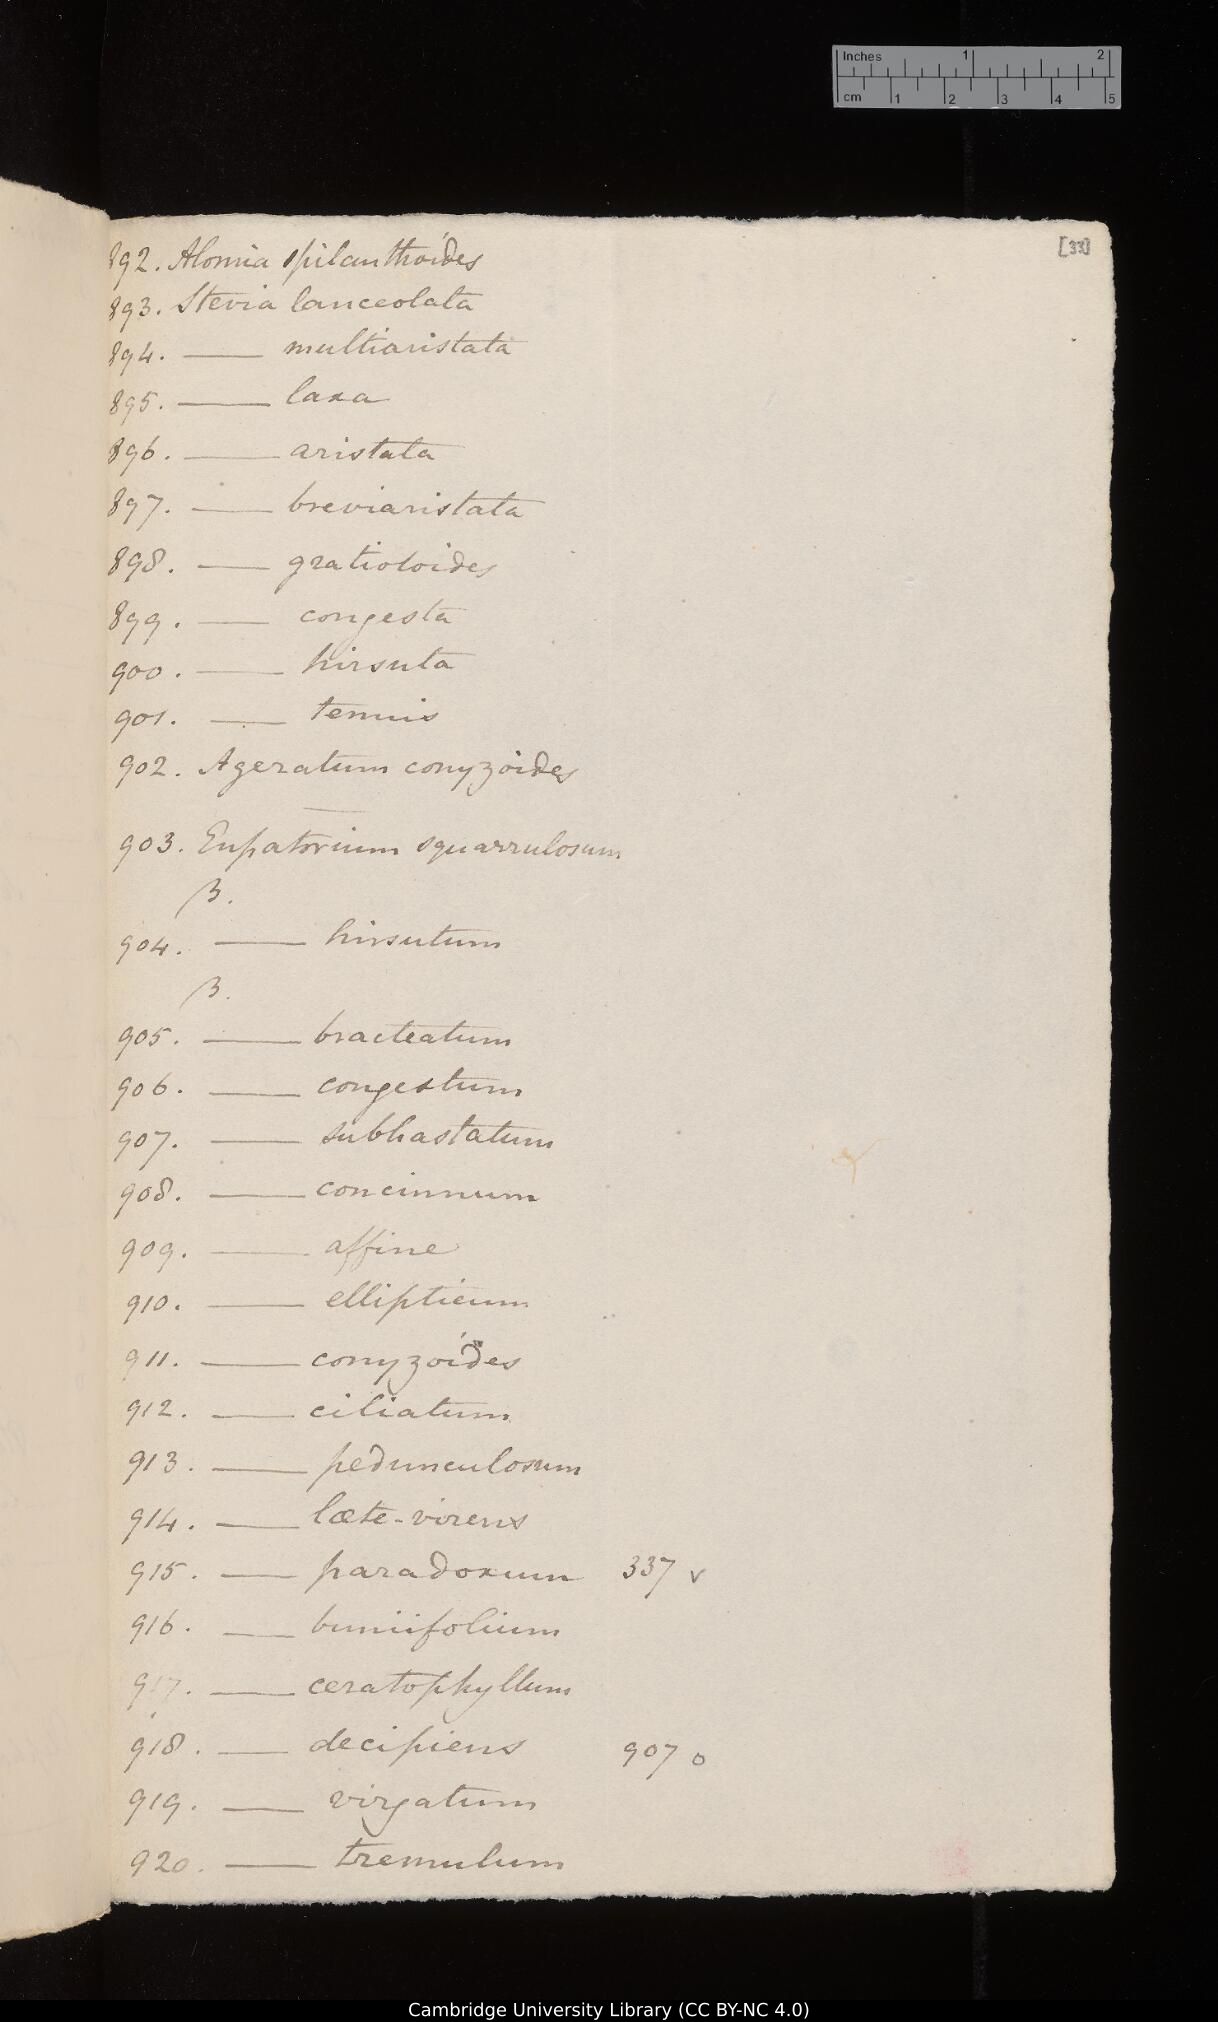 Inches 1 2
cm 1 2 3 4 5
[33]
892. Alomia spilanthoides
893. Stevia lanceolata
894. —— multiaristata
895. —— laxa
896. —— aristata
897. —— breviaristata
898. —— gratioloides
899. —— congesta
900. —— hirsuta
901. —— tenuis
902. Ageratum conyzoides
903. Eupatorium squarrulosum
β.
904. —— hirsutum
β.
905. —— bracteatum
906. —— congestum
907. —— subhastatum
908. —— concinnum
909. —— affine
910. —— ellipticum
911. —— conyzoides
912. —— ciliatum
913. —— pedunculosum
914. —— læte-virens
915. —— paradoxum 337 v
916. —— buniifolium
917. —— ceratophyllum
918. —— decipiens 907 o
919. —— virgatum
920. —— tremulum
Cambridge University Library (CC BY-NC 4.0)